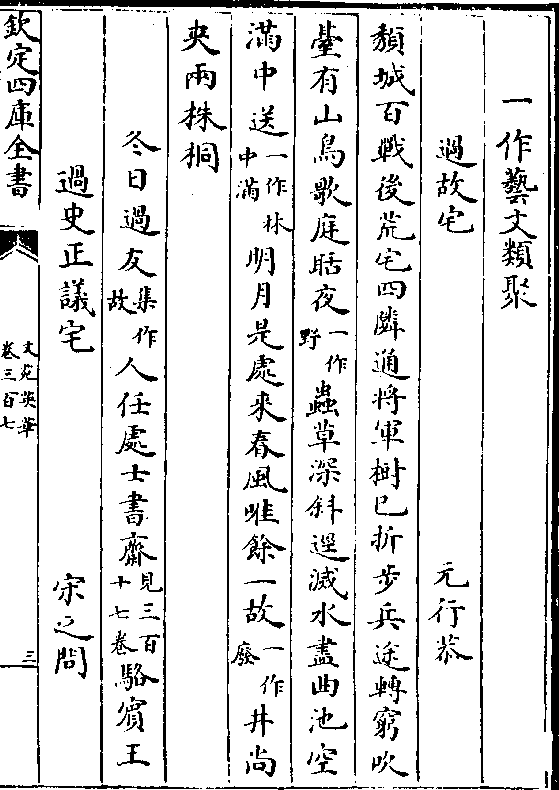 一作藝文類聚
過故宅 元行恭
頽城百戰後荒宅四隣通將軍樹已折步兵途轉窮吹
臺有山鳥歌庭聒夜一作野蟲草深斜逕滅水盡曲池空
滿中送一作林中滿明月是處來春風唯餘一故一作廢井尚
夾兩株桐
冬日過友集作故人任處士書齋見三百十七卷駱賓王
過史正議宅 宋之問
欽定四庫全書
文苑英華
卷三百七
三